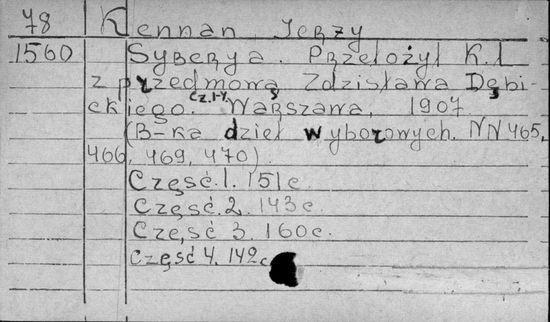 78 Kennan Jerzy
1560 Syberya. Przełożył K.L
z przedmową Zdzisława Dębi-
ckiego. Cz.1-4. Warszawa, 1907
(B-ka dzieł wyborowych. NN 465,
466, 469, 470).
Część.1. 151c.
Część.2. 143c.
Część 3. 160c.
Część 4. 142c